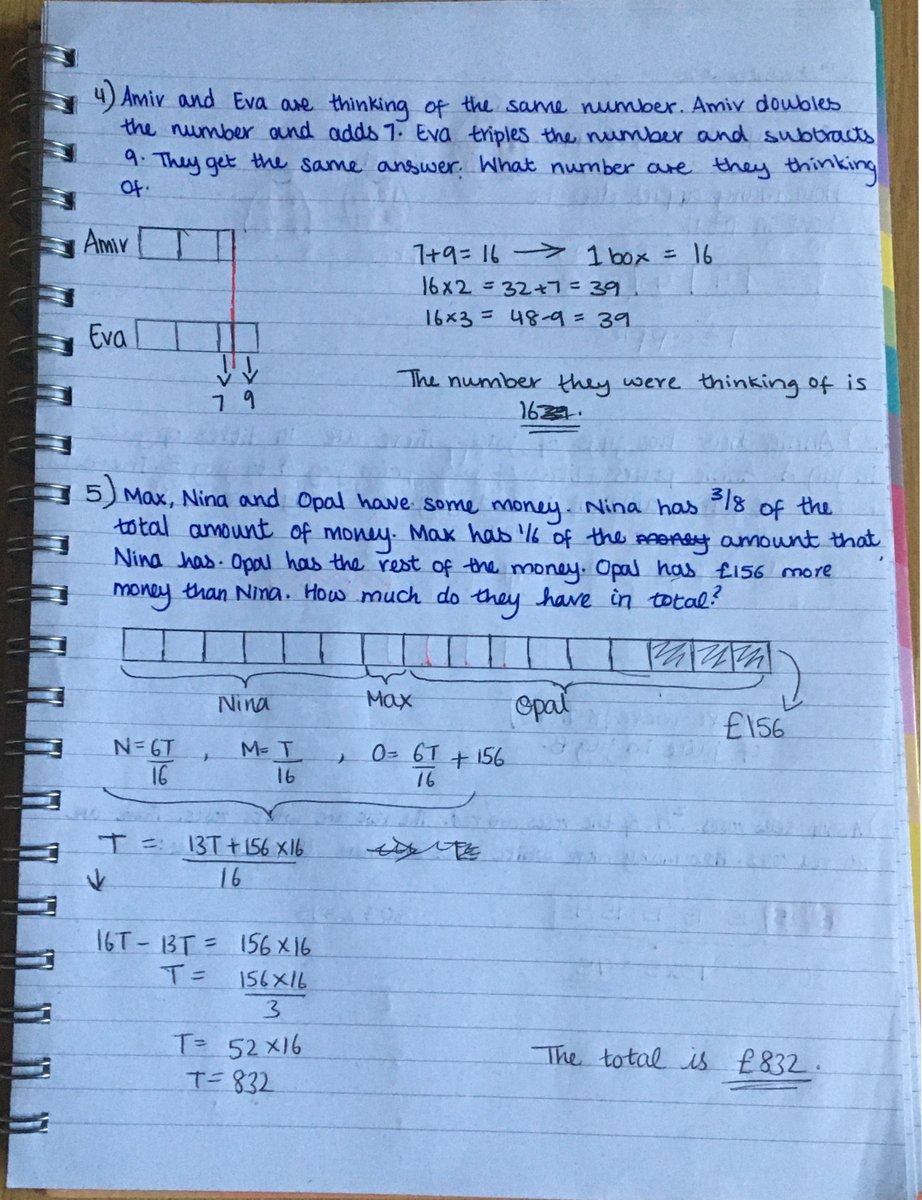 4) Amir and Eva are thinking of the same number. Amir doubles
the number and adds 7. Eva triples the number and subtracts
9. They get the same answer. What number are they thinking
of.
Amir
7+9= 16 → 1 box = 16
16×2 = 32+7 = 39
16×3 = 48-9 = 39
Eva
7 9
The number they were thinking of is
16.
5) Max, Nina and Opal have some money. Nina has 3/8 of the
total amount of money. Max has 1/6 of the money amount that
Nina has. Opal has the rest of the money. Opal has £156 more
money than Nina. How much do they have in total?
Nina Max Opal £156
N= 6T/16 , M= T/16 , O= 6T/16 + 156
T = 13T + 156 × 16 / 16
↓
16T - 13T = 156 × 16
T = 156×16 / 3
T= 52 ×16
T= 832
The total is £832.